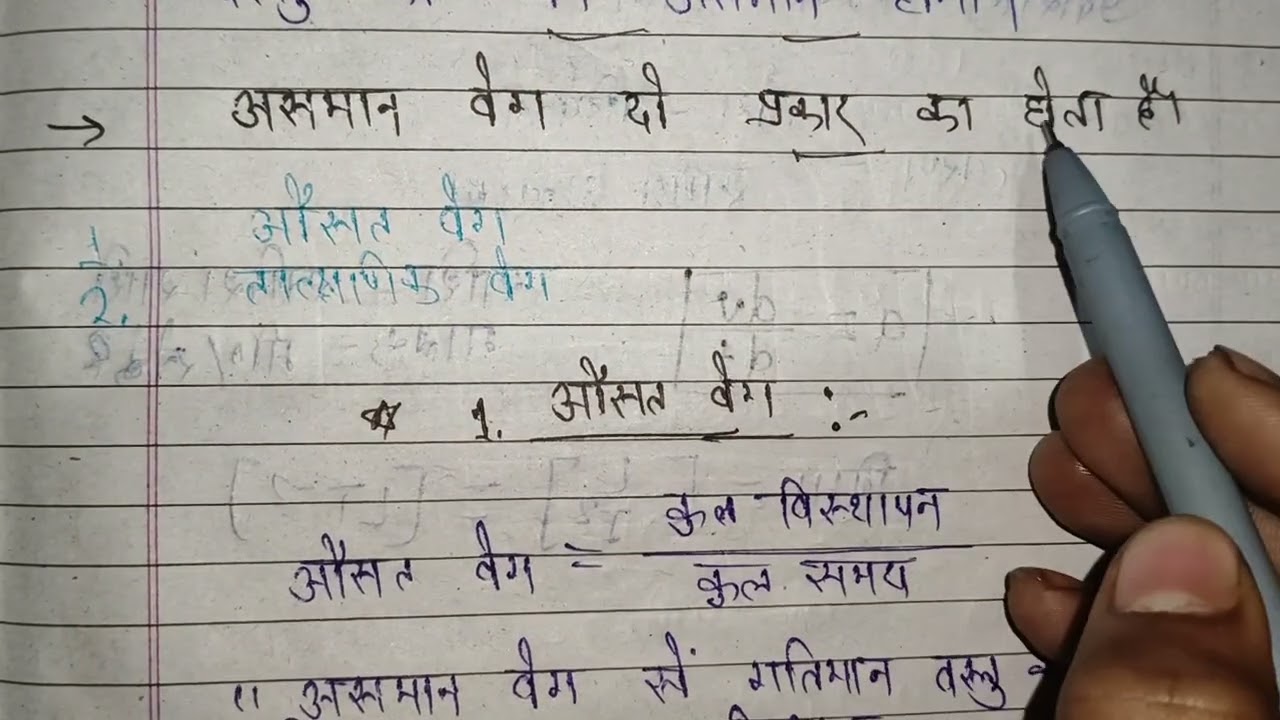 → असमान वेग दो प्रकार का होता है।
1. औसत वेग
2. तात्क्षणिक वेग
1. औसत वेग :-
औसत वेग = कुल विस्थापन
कुल समय
" असमान वेग से गतिमान वस्तु